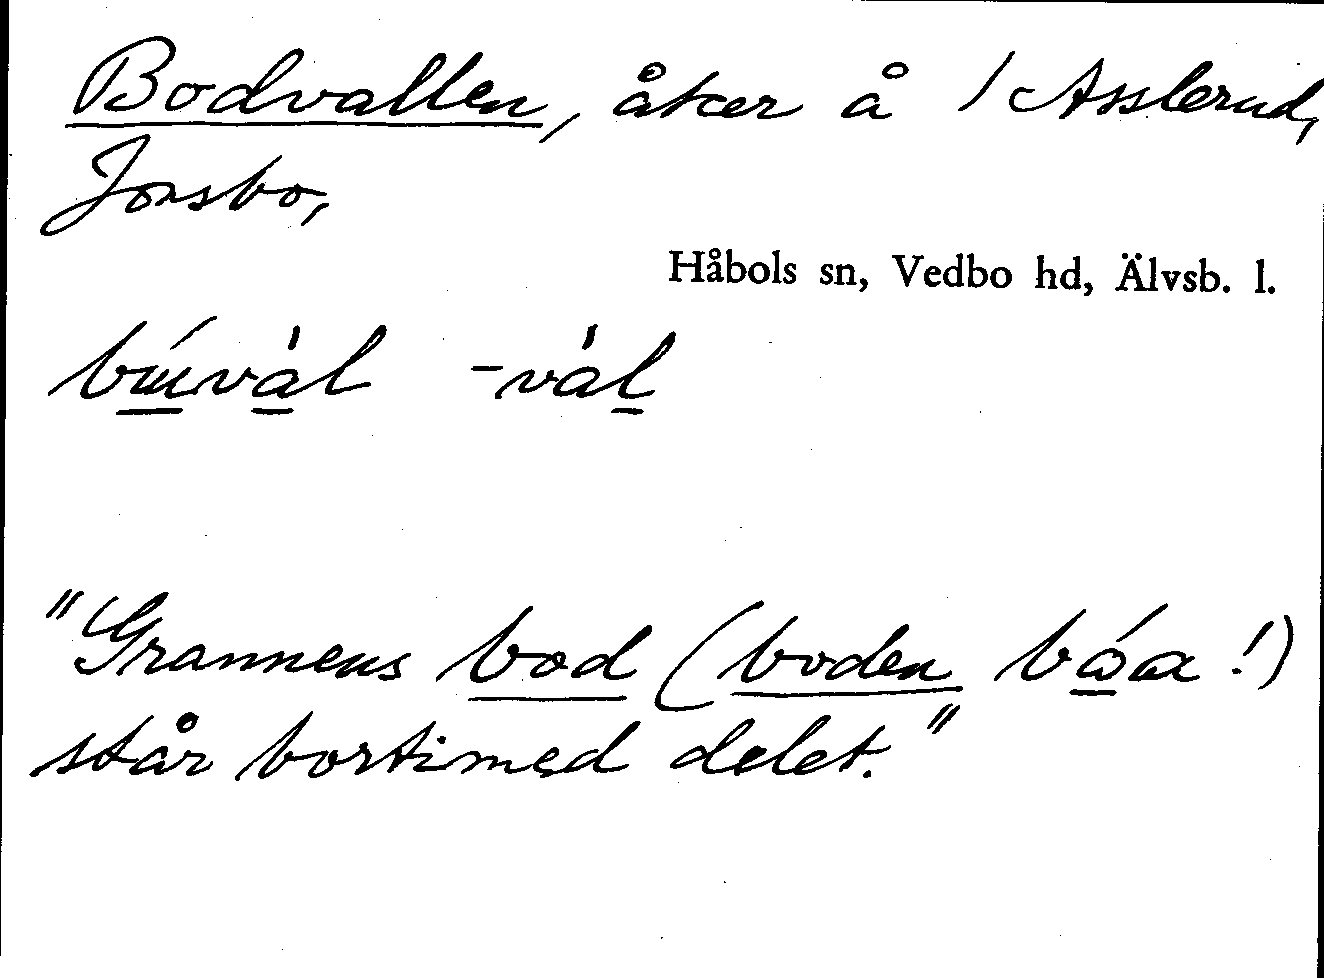 Bodvallen, åker å 1 Asslerud,
Jonsbo,
Håbols sn, Vedbo hd, Älvsb. l.
búvàl -vàl
"Grannens bod (boden bóa!)
står bortimed delet."